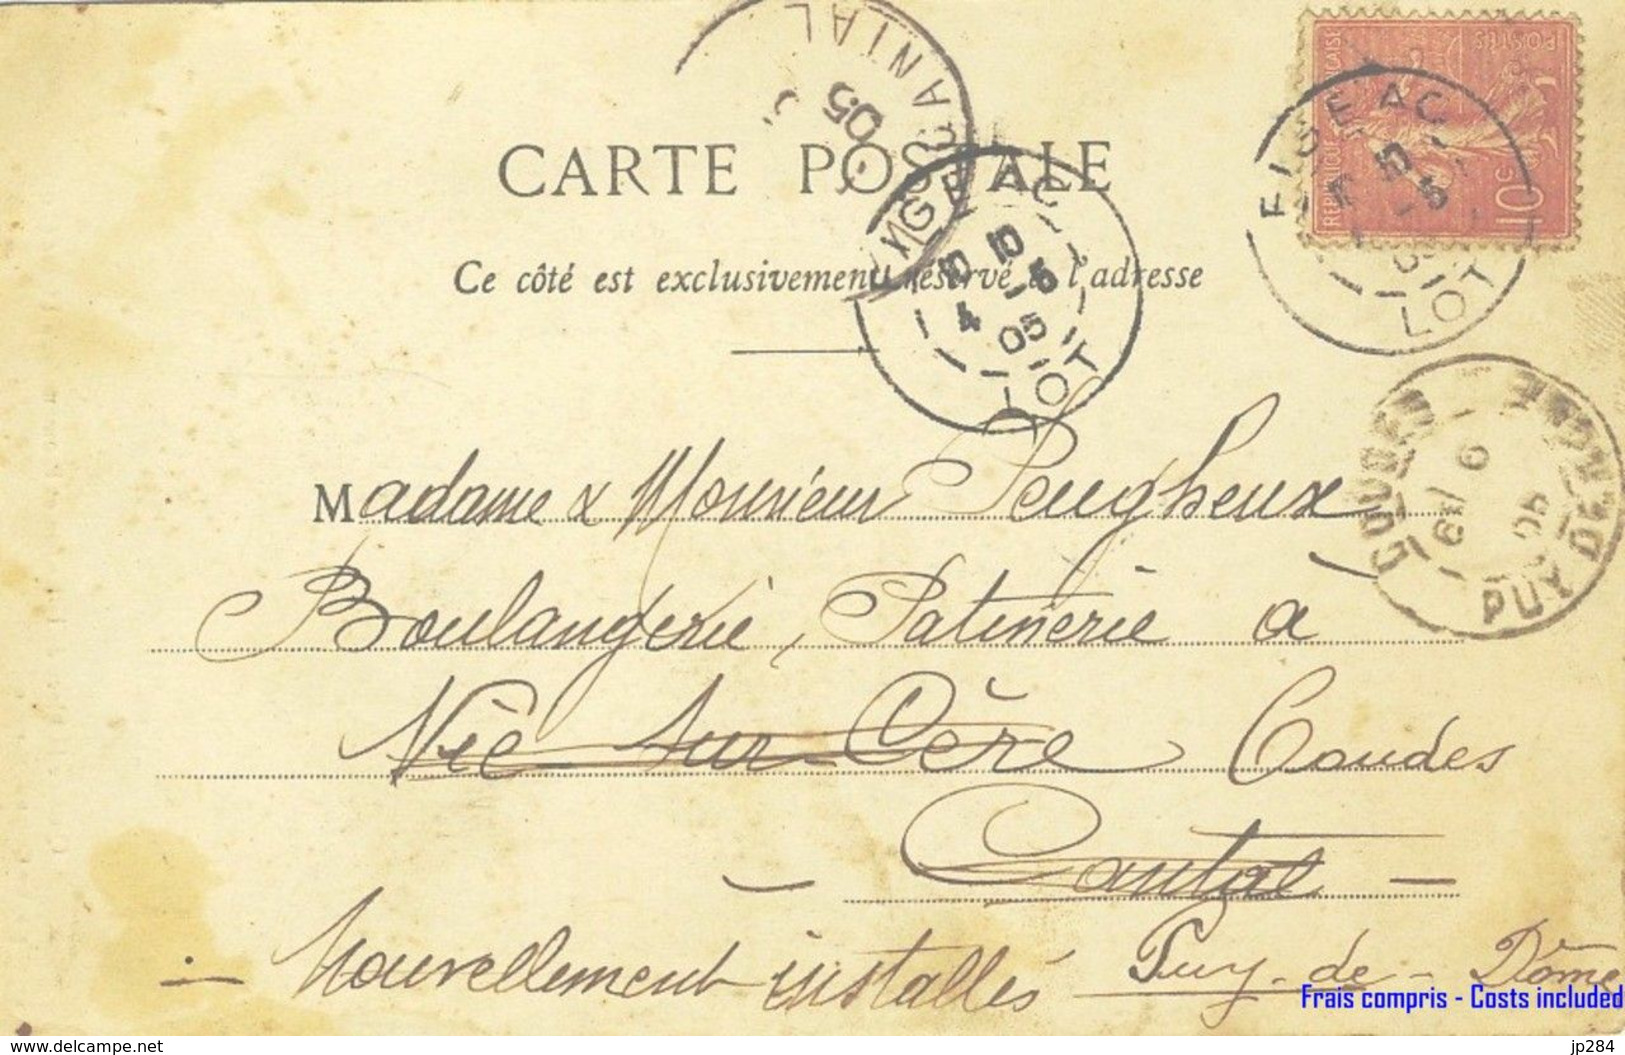 CANTAL
05
POSTES
RÉPUBLIQUE FRANÇAISE
10c
FIGEAC
5
LOT
CARTE POSTALE
FIGEAC
10 10
4 -5
05
LOT
Ce côté est exclusivement réservé à l'adresse
Madame & Monsieur Peugheux
Boulangerie, Patisserie à
Vic sur Cère Coudes
Cantal
- Nouvellement installés Puy-de-Dôme
COUDES
6
05
PUY DE DOME
Frais compris - Costs included
https://www.delcampe.net
jp284